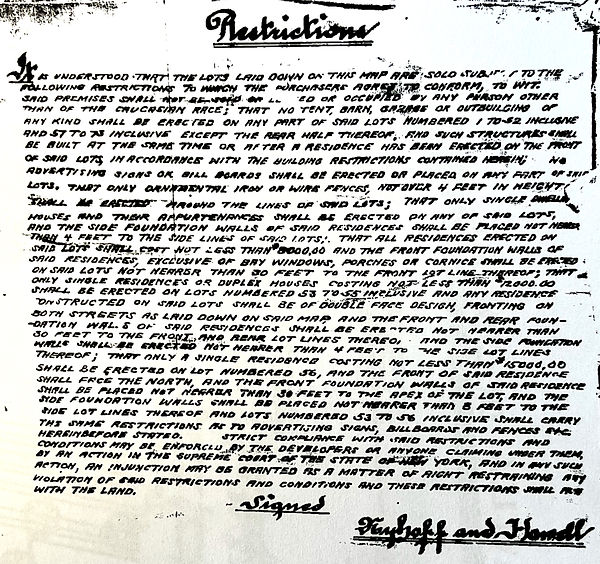 Restrictions
It is understood that the lots laid down on this map are sold to the
following restrictions to which the purchasers agree to conform, to wit.
said premises shall not be sold or ed or occupied by any person other
than of the Caucasian race; that no tent, barn, garage or outbuilding of
any kind shall be erected on any part of said lots numbered 1 to 52 inclusive
and 57 to 73 inclusive except the rear half thereof, and such structures shall
be built at the same time or after a residence has been erected on the front
of said lots, in accordance with the building restrictions contained herein; no
advertising signs or bill boards shall be erected or placed on any part of said
lots. That only ornamental iron or wire fences, not over 4 feet in height
shall be erected around the lines of said lots; that only single dwelling
houses and their appurtenances shall be erected on any of said lots,
and the side foundation walls of said residences shall be placed not nearer
than 4 feet to the side lines of said lots,. That all residences erected on
said lots shall cost not less than $ and the front foundation walls of
said residences, exclusive or bay windows, porches or cornice shall be erected
on said lots not nearer than 30 feet to the front lot line thereof; that
only single residences or duplex houses costing not less than $12000.00
shall be erected on lots numbered 53 to 55 inclusive and any residence
constructed on said lots shall be of double face design, fronting on
both streets as laid down on said map and the front and rear foun-
dation walls of said residences shall be erected not nearer than
30 feet to the front and rear lot lines thereof. and the side foundation
walls shall be erected not nearer than 4 feet to the side lot lines
thereof; that only a single residence costing not less than $15000.00
shall be erected on lot numbered 56, and the front of said residence
shall face the north, and the front foundation walls of said residence
shall be placed not nearer than 30 feet to the apex of the lot, and the
side foundation walls shall be placed not nearer than 8 feet to the
side lot lines thereof and lots numbered 53 to 56 inclusive shall carry
the same restrictions as to advertising signs, billboards and fences etc.
hereinbefore stated. Strict compliance with said restrictions and
conditions may be enforced by the developers or anyone claiming under them,
by an action in the Supreme Court of the State of New York, and in any such
action, an injunction may be granted as a matter of right restraining any
violation of said restrictions and conditions and these restrictions shall run
with the land.
- Signed
Nyhoff and Howell